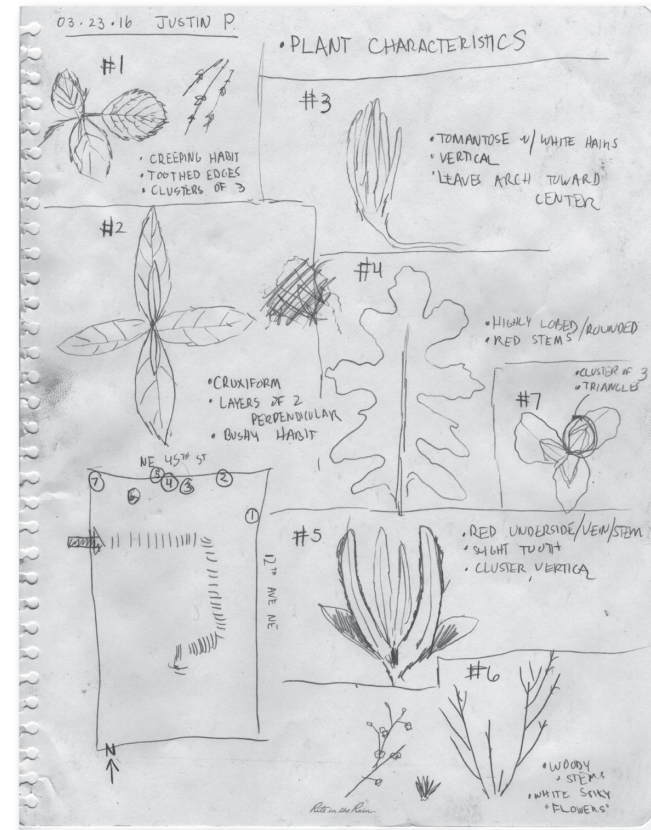 03.23.16 JUSTIN P.
• PLANT CHARACTERISTICS
#1
• CREEPING HABIT
• TOOTHED EDGES
• CLUSTERS OF 3
#3
• TOMANTOSE W/ WHITE HAIRS
• VERTICAL
• LEAVES ARCH TOWARD
CENTER
#2
• CRUXIFORM
• LAYERS OF 2
PERPENDICULAR
• BUSHY HABIT
#4
• HIGHLY LOBED/ROUNDED
• RED STEMS
#7
• CLUSTER OF 3
• TRIANGLES
NE 45TH ST
7
5
4
3
2
6
1
12TH AVE NE
N
#5
• RED UNDERSIDE/VEIN/STEM
• SLIGHT TOOTH
• CLUSTER VERTICAL
#6
• WOODY
STEMS
• WHITE SPIKY
"FLOWERS"
Rite in the Rain